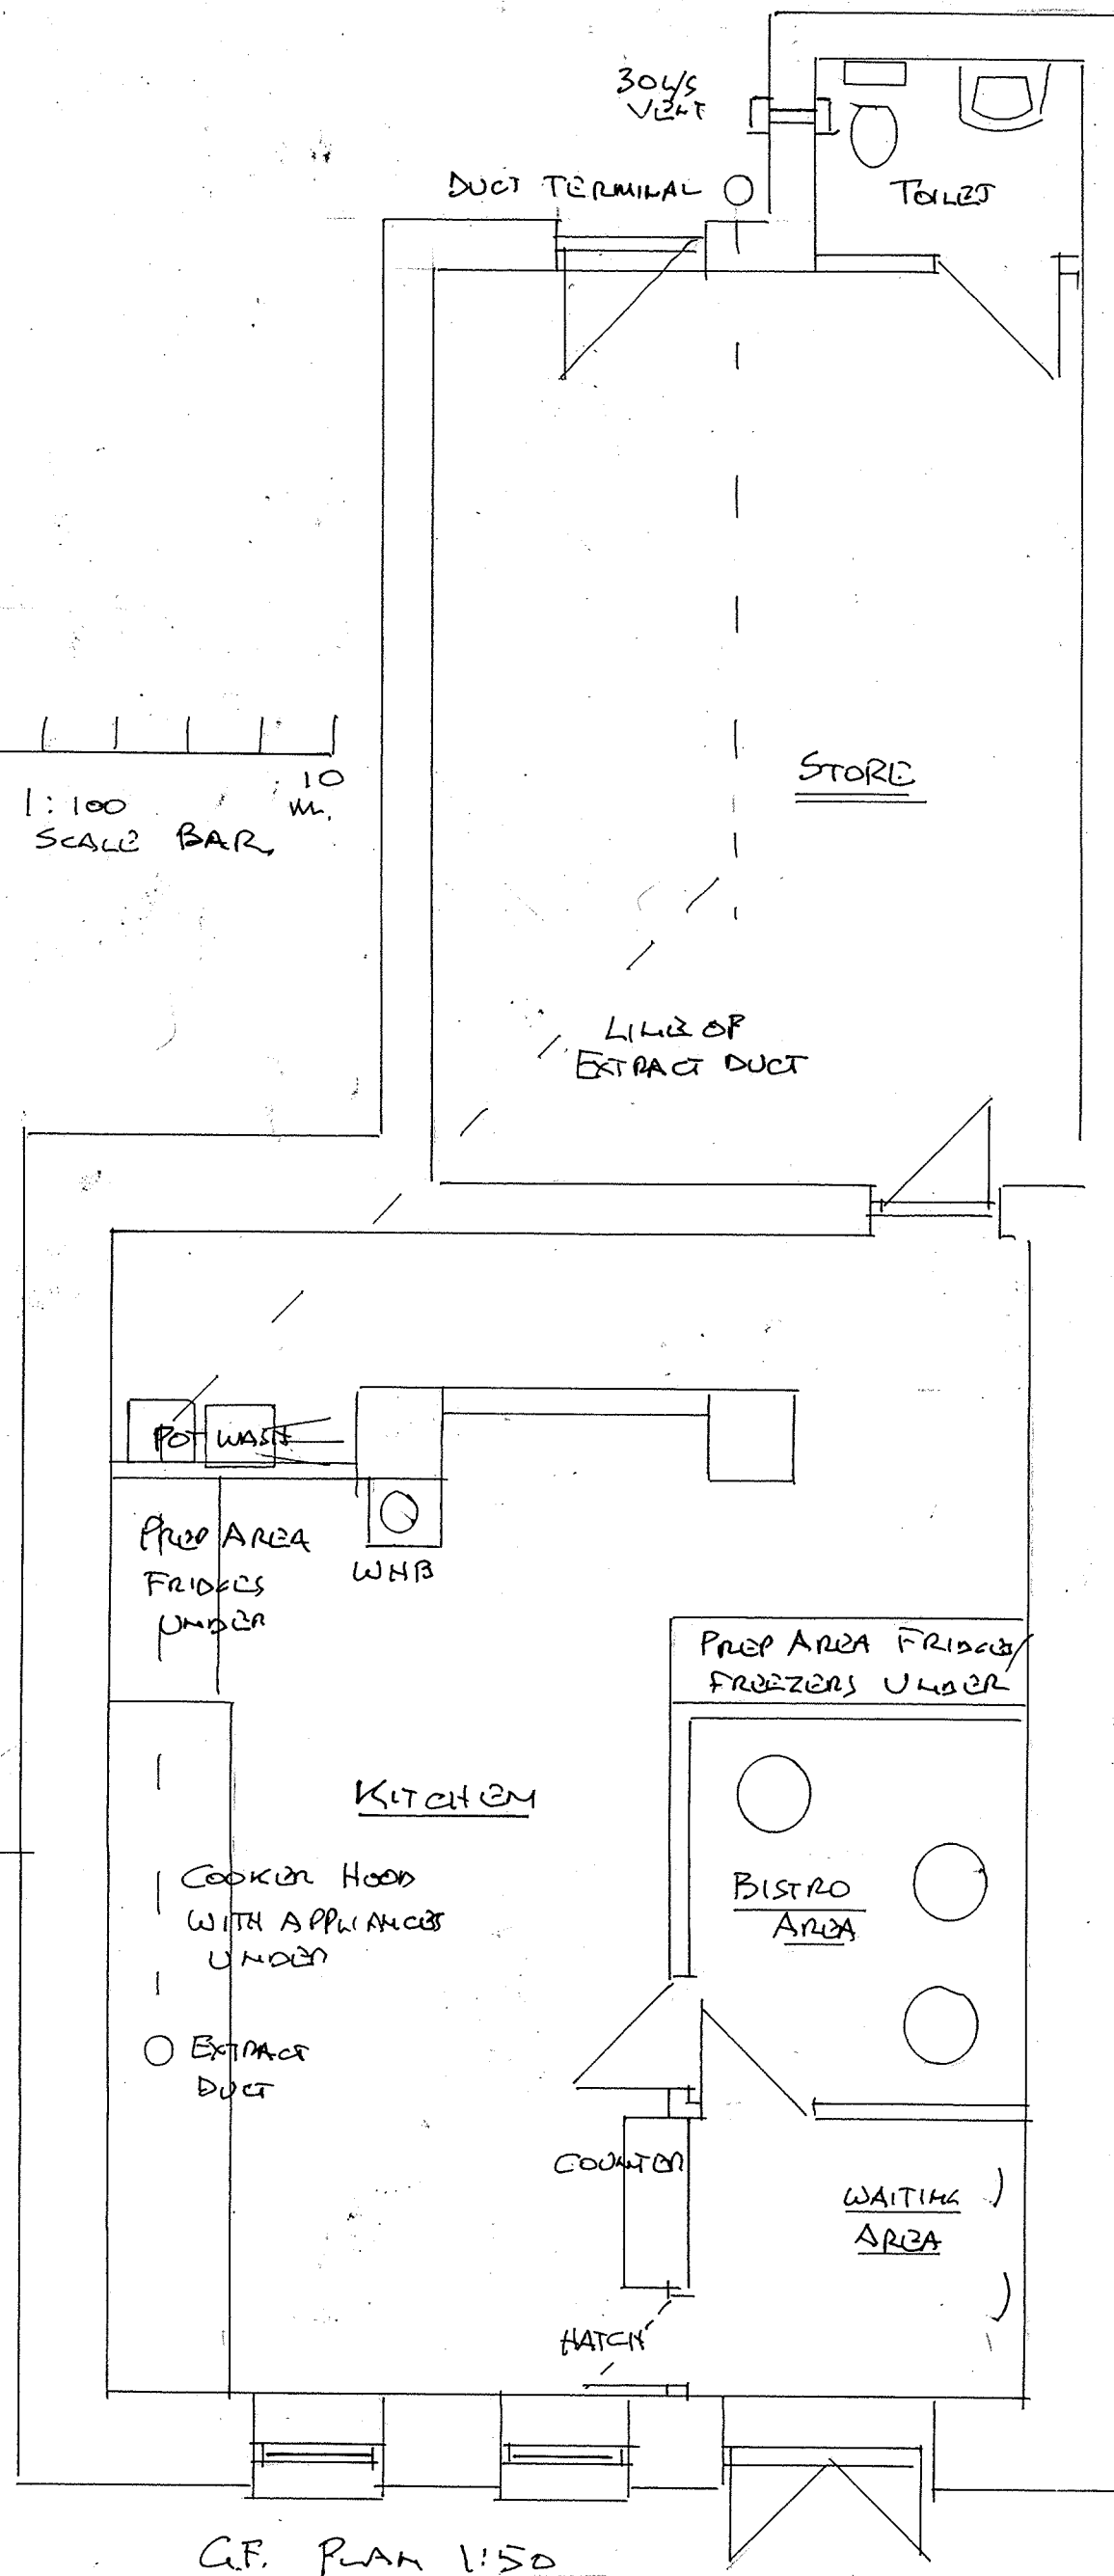 30L/S
VENT
DUCT TERMINAL
TOILET
STORE
10
1:100
m.
SCALE BAR
LINE OF
EXTRACT DUCT
POT WASH
PREP AREA
FRIDGES
UNDER
WHB
PREP AREA FRIDGES/
FREEZERS UNDER
KITCHEN
BISTRO
AREA
COOKER HOOD
WITH APPLIANCES
UNDER
EXTRACT
DUCT
COUNTER
WAITING
AREA
HATCH
G.F. PLAN 1:50